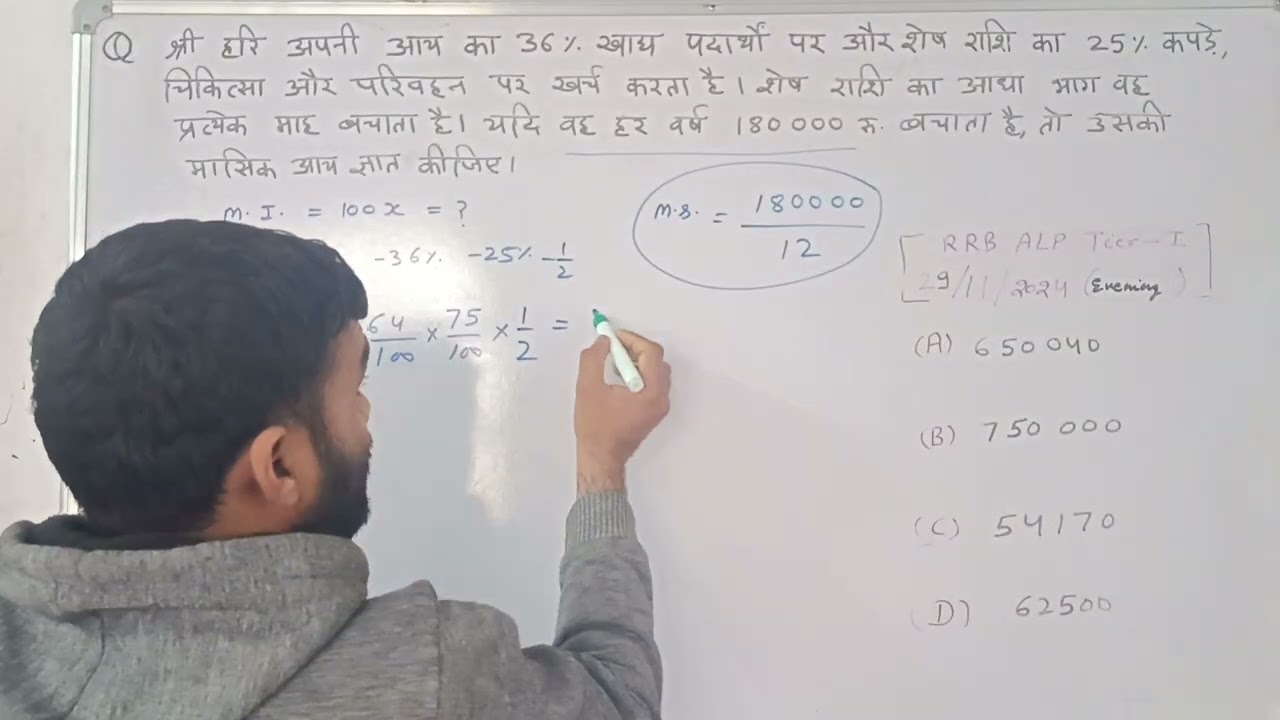 Q श्री हरि अपनी आय का 36% खाद्य पदार्थों पर और शेष राशि का 25% कपड़े,
चिकित्सा और परिवहन पर खर्च करता है। शेष राशि का आधा भाग वह
प्रत्येक माह बचाता है। यदि वह हर वर्ष 180000 रु. बचाता है, तो उसकी
मासिक आय ज्ञात कीजिए।
M.I. = 100x = ?
-36% -25% -1/2
64/100 × 75/100 × 1/2 =
M.S. = 180000/12
[RRB ALP Tier-I
29/11/2024 (Evening)]
(A) 650040
(B) 750000
(C) 54170
(D) 62500